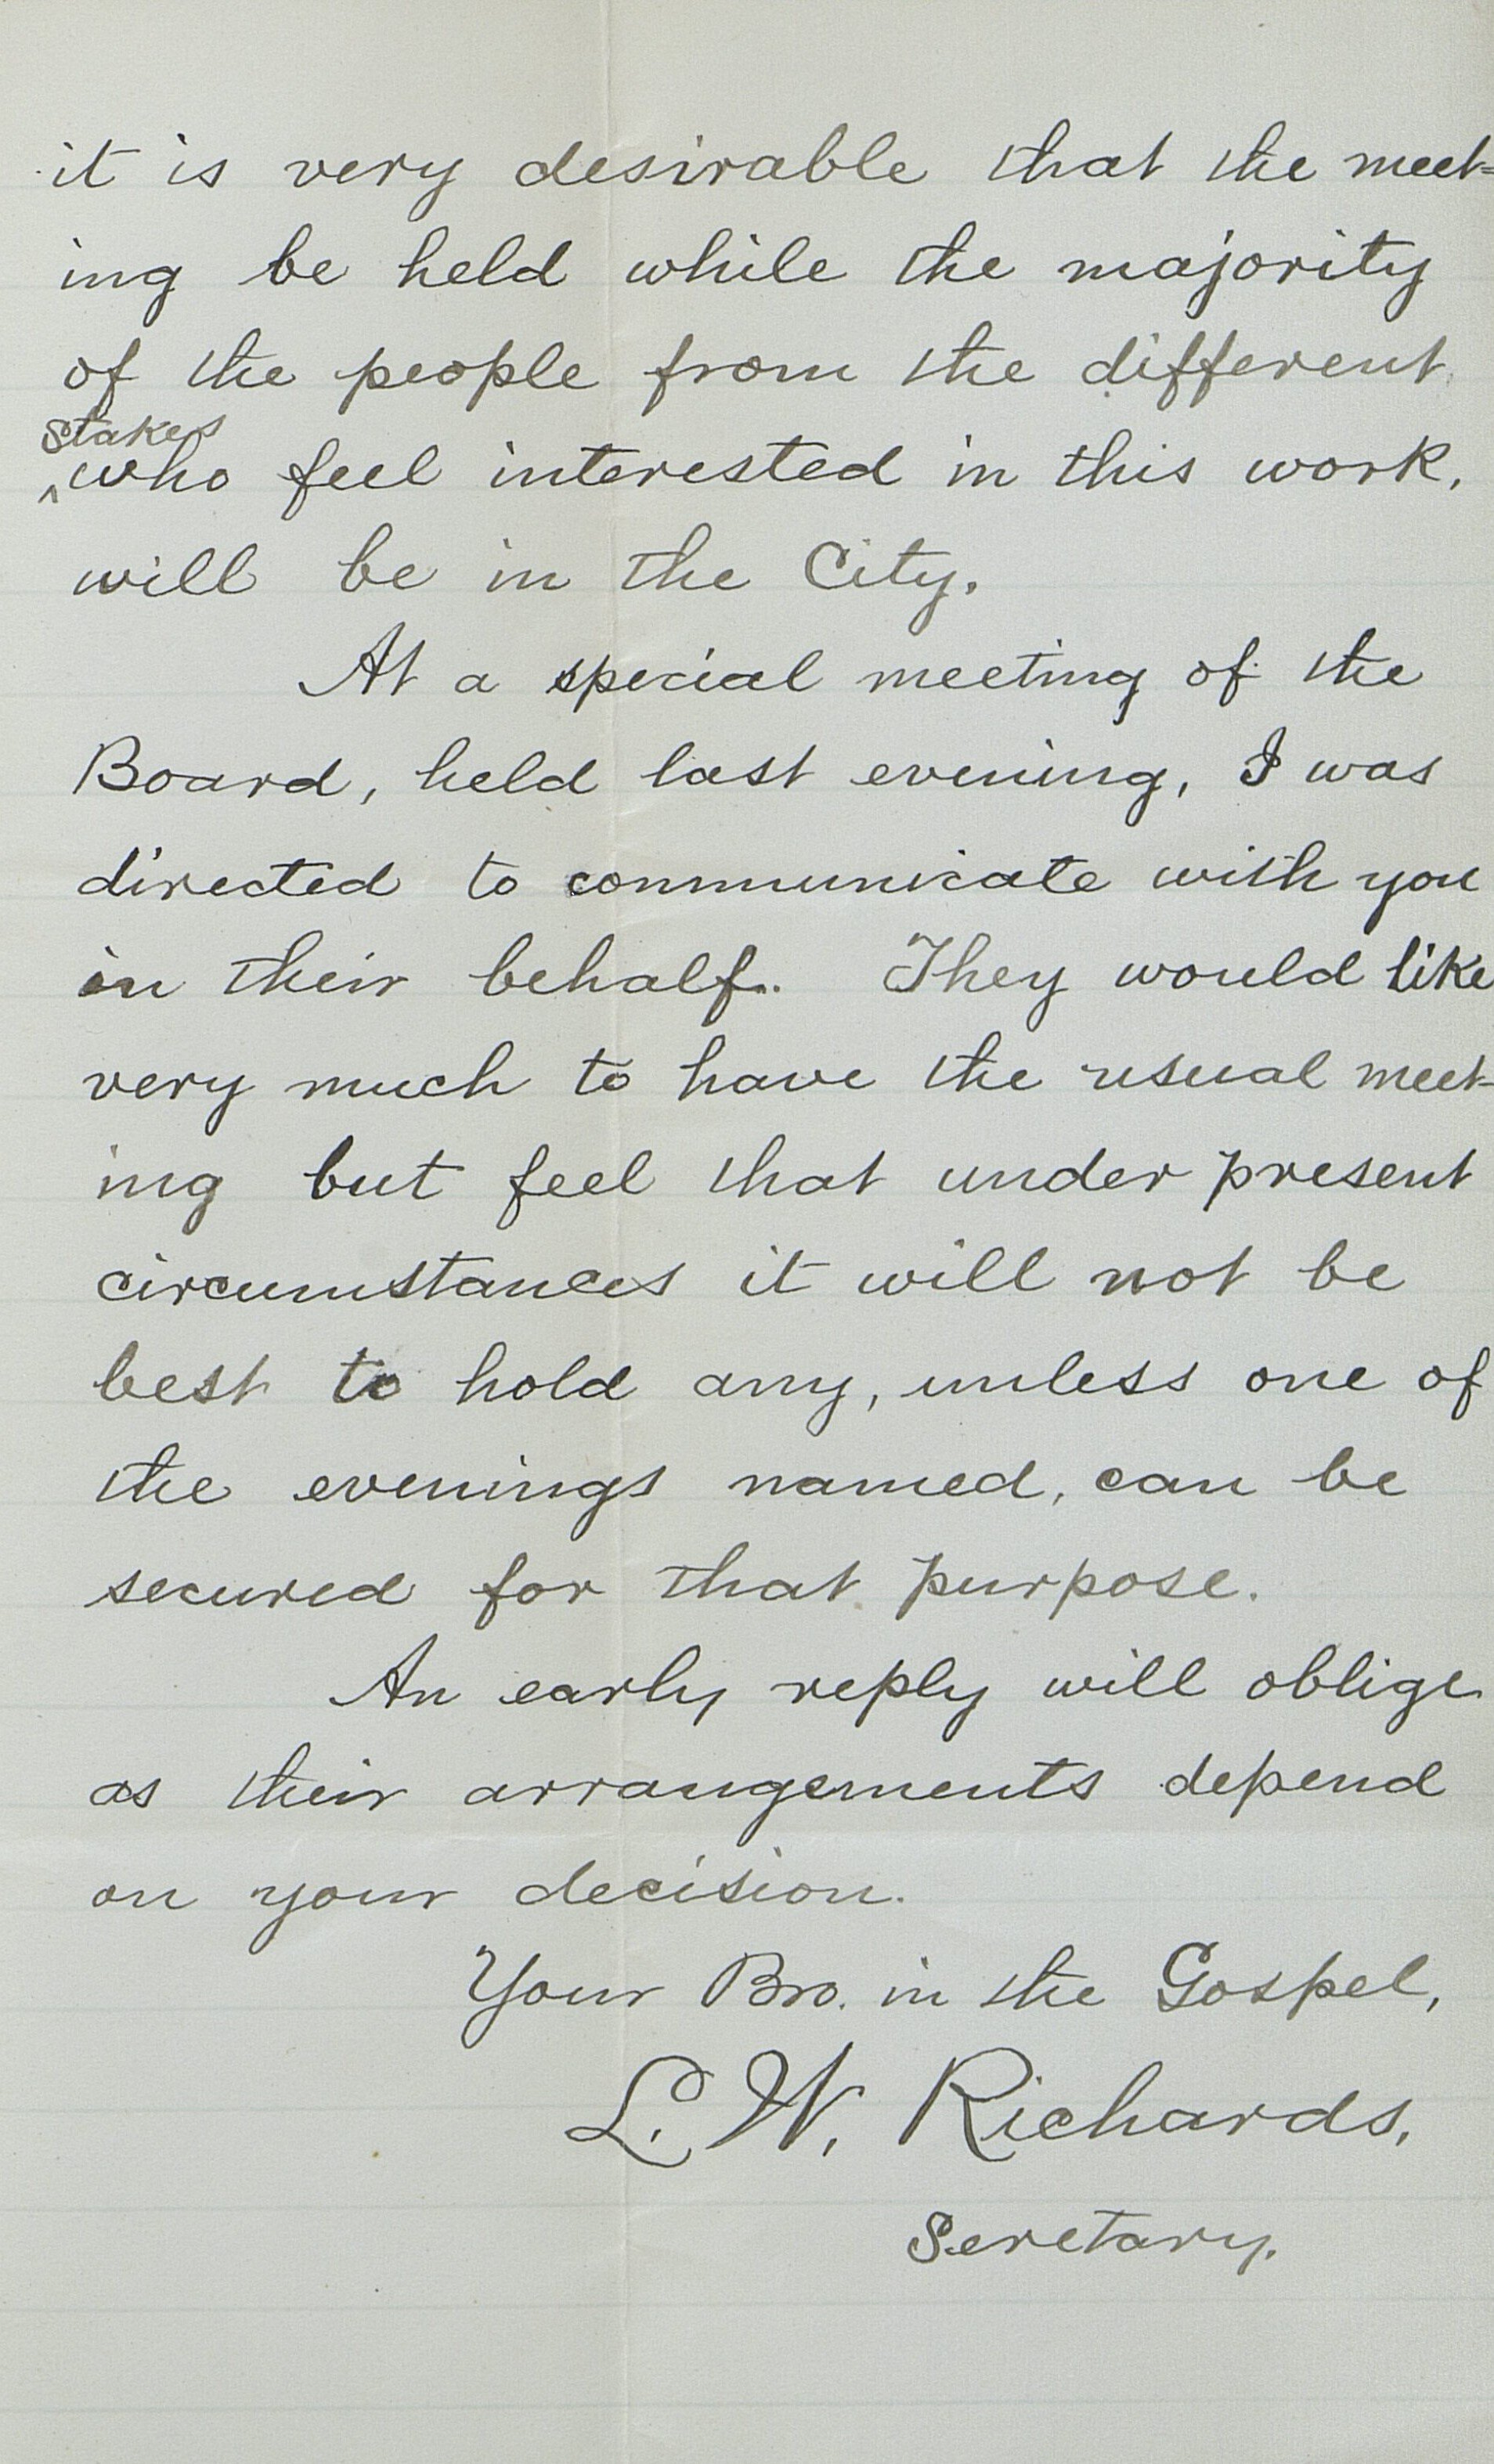 it is very desirable that the meet=
ing be held while the majority
of the people from the different
stakes
^who feel interested in this work,
will be in the City.
At a special meeting of the
Board, held last evening, I was
directed to communicate with you
in their behalf. They would like
very much to have the usual meet-
ing but feel that under present
circumstances it will not be
best to hold any, unless one of
the evenings named, can be
secured for that purpose.
An early reply will oblige
as their arrangements depend
on your decision.
Your Bro. in the Gospel,
L. W. Richards,
Seretary.